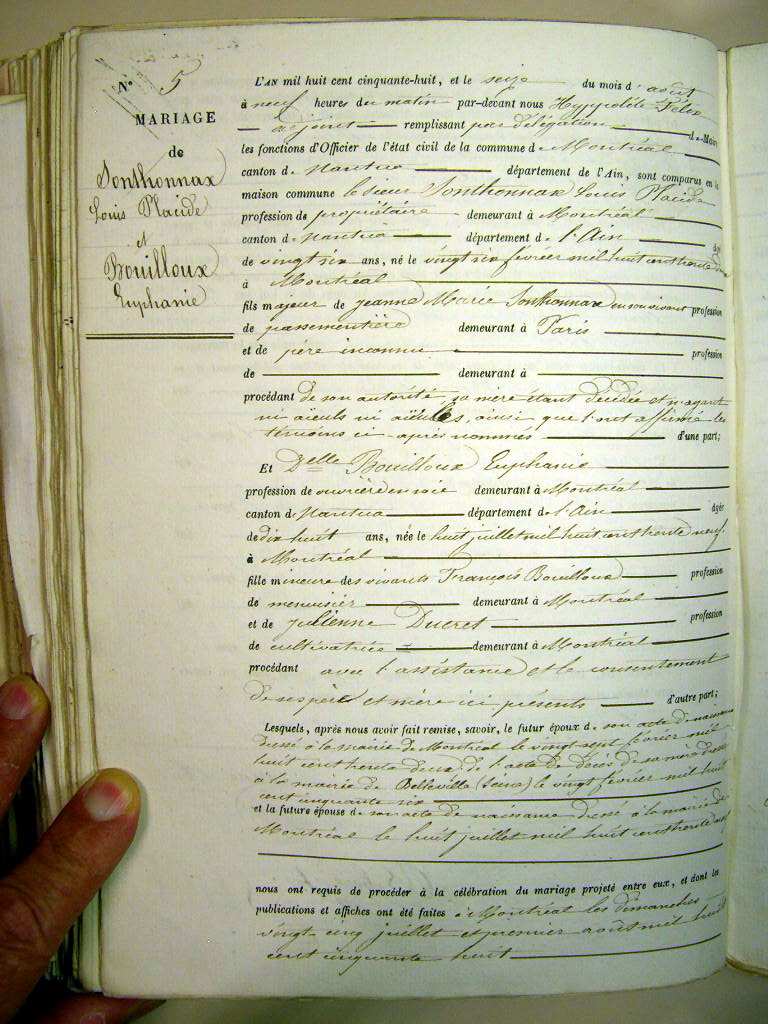 N° 5
MARIAGE
de
Sonthonnax
Louis Placide
et
Bouilloux
Euphanie
L'AN mil huit cent cinquante-huit, et le seize du mois d'août
à neuf heures du matin par-devant nous Hyppolite Félix
adjoint remplissant par délégation d Maire
les fonctions d'Officier de l'état civil de la commune d Montréal
canton d Nantua département de l'Ain, sont comparus en la
maison commune le sieur Sonthonnax Louis Placide
profession de propriétaire demeurant à Montréal
canton d Nantua département d l'Ain âgé
de vingt six ans, né le vingt six février mil huit cent trente deux
à Montréal
fils majeur de jeanne Marie Sonthonnax en son vivant profession
de passementière demeurant à Paris
et de père inconnu profession
de demeurant à
procédant de son autorité, sa mère étant décédée et n'ayant
ni aïeuls ni aïeules, ainsi que l'ont affirmé les
témoins ci-après nommés d'une part;
Et Delle Bouilloux Euphanie
profession de ouvrière en soie demeurant à Montréal
canton d Nantua département d l'Ain âgée
de dix huit ans, née le huit juillet mil huit cent trente neuf
à Montréal
fille mineure des vivants François Bouilloux profession
de menuisier demeurant à Montréal
et de julienne Ducret profession
de cultivatrice demeurant à Montréal
procédant avec l'assistance et le consentement
de ses père et mère ici présents d'autre part;
Lesquels, après nous avoir fait remise, savoir, le futur époux d son acte de naissance
dressé à la mairie de Montréal le vingt sept février mil
huit cent trente deux, de l'acte de décès de sa mère dressé
à la mairie de Belleville (Seine) le vingt février mil huit
cent cinquante six
et la future épouse d son acte de naissance dressé à la mairie de
Montréal le huit juillet mil huit cent trente neuf
nous ont requis de procéder à la célébration du mariage projeté entre eux, et dont les
publications et affiches ont été faites à Montréal les dimanches
vingt cinq juillet et premier août mil huit
cent cinquante huit